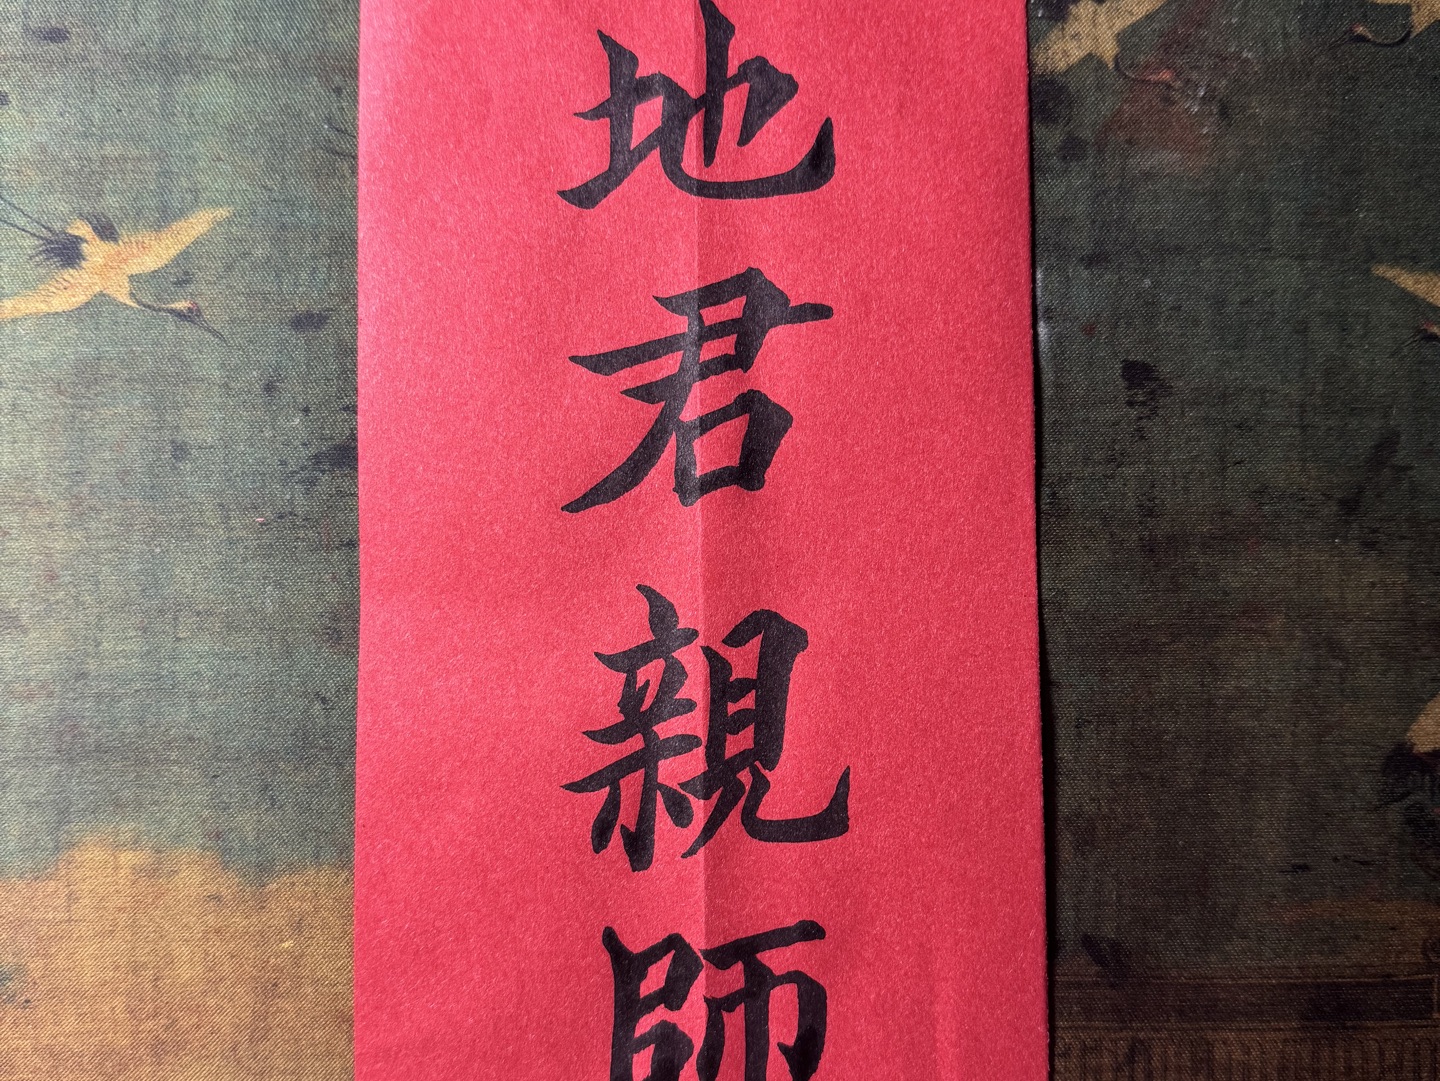 地君親師